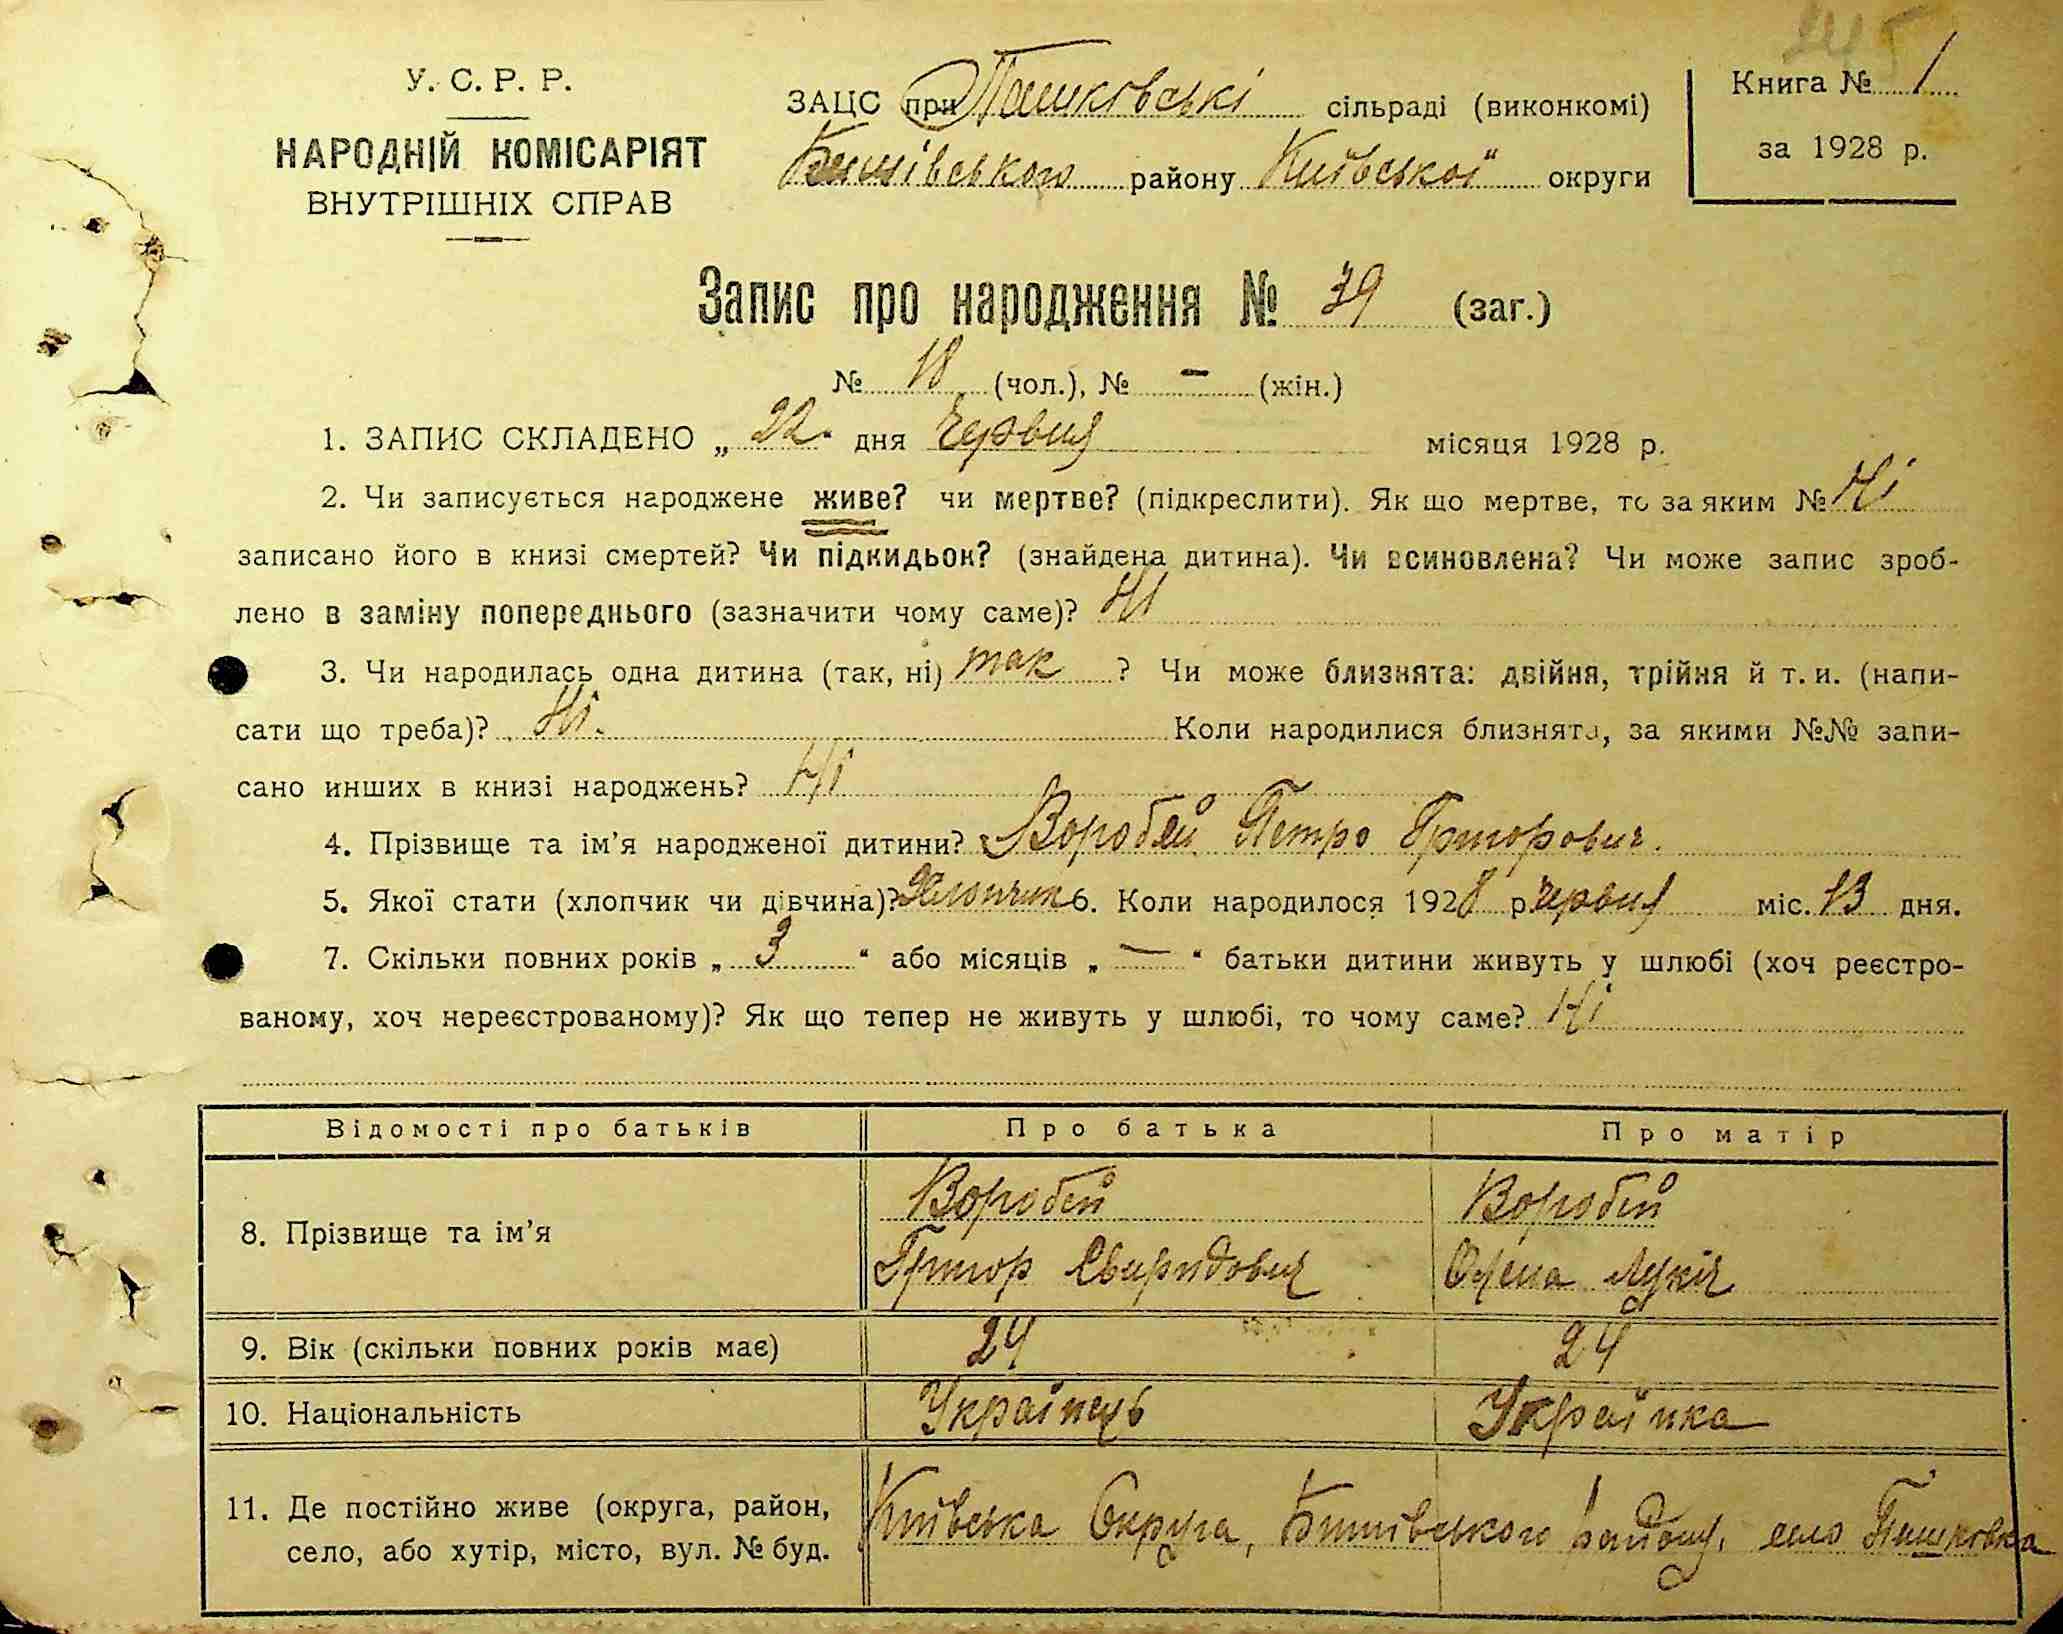 245
У. С. Р. Р.
НАРОДНІЙ КОМІСАРІЯТ
ВНУТРІШНІХ СПРАВ
ЗАЦС при Пашковські сільраді (виконкомі)
Бишівського району Київської округи
Книга № 1
за 1928 р.
Запис про народження № 39 (заг.)
№ 18 (чол.), № — (жін.)
1. ЗАПИС СКЛАДЕНО „ 22 " дня Червця місяця 1928 р.
2. Чи записується народжене живе? чи мертве? (підкреслити). Як що мертве, то за яким № Ні
записано його в книзі смертей? Чи підкидьок? (знайдена дитина). Чи всиновлена? Чи може запис зроб-
лено в заміну попереднього (зазначити чому саме)? Ні
3. Чи народилась одна дитина (так, ні) так ? Чи може близнята: двійня, трійня й т. и. (напи-
сати що треба)? Ні. Коли народилися близнята, за якими №№ запи-
сано инших в книзі народжень? Ні
4. Прізвище та ім'я народженої дитини? Воробей Петро Григорович.
5. Якої стати (хлопчик чи дівчина)? Хлопчик 6. Коли народилося 1928 р. Червця міс. 13 дня.
7. Скільки повних років „ 3 " або місяців „ — " батьки дитини живуть у шлюбі (хоч реєстро-
ваному, хоч нереєстрованому)? Як що тепер не живуть у шлюбі, то чому саме? Ні
Відомості про батьків Про батька Про матір
8. Прізвище та ім'я
Воробей
Григор Свиридович
Воробей
Олена Лукіч
9. Вік (скільки повних років має) 24 24
10. Національність Українець Українка
11. Де постійно живе (округа, район,
село, або хутір, місто, вул. № буд.
Київська Округа, Бишівського району, село Пашковка